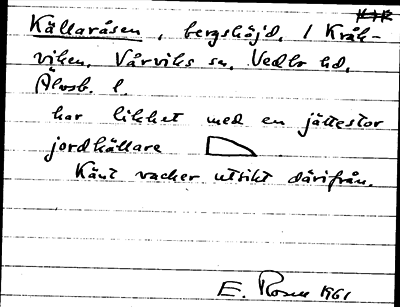 Källaråsen, bergshöjd, i Kråk-
viken, Vårviks sn, Vedbo hd,
Älvsb. l.
har likhet med en jättestor
jordkällare
Känt vacker utsikt därifrån.
E. Rosen 1961